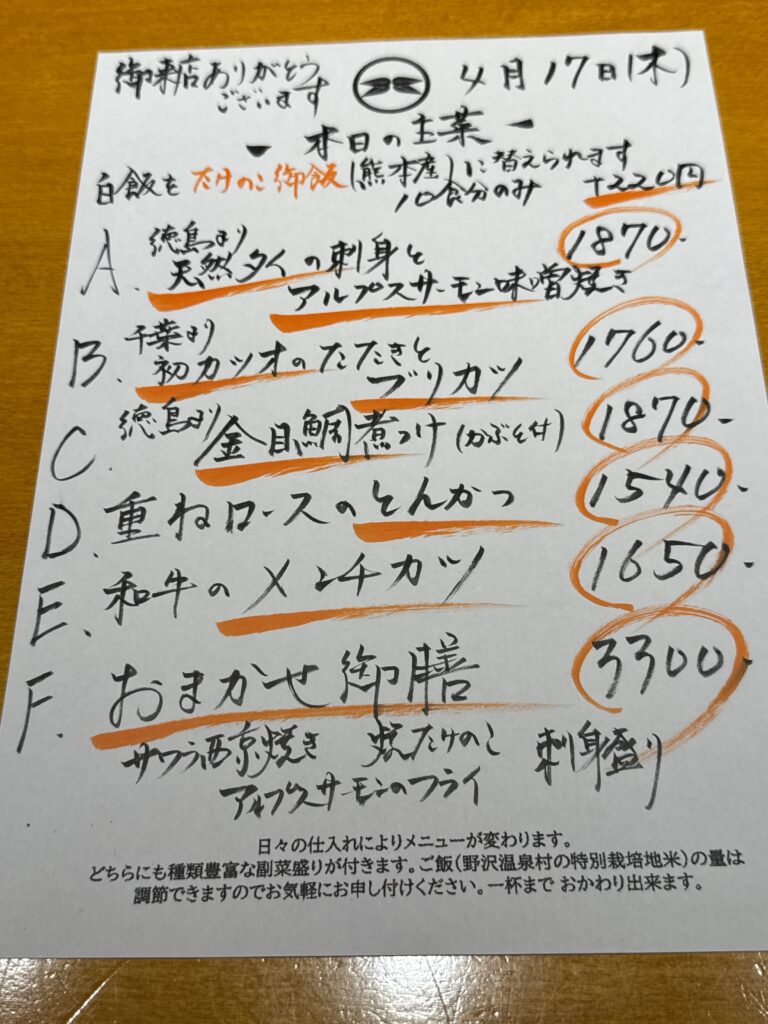 御来店ありがとう
ございます
4月17日(木)
- 本日の主菜 -
白飯をたけのこ御飯(熊本産)に替えられます
10食分のみ +220円
A. 徳島より
天然タイの刺身と 1870-
アルプスサーモン味噌焼き
B. 千葉より
初カツオのたたきと 1760-
ブリカツ
C. 徳島より
金目鯛煮つけ(かぶそ付) 1870-
D. 重ねロースのとんかつ 1540-
E. 和牛のメンチカツ 1650-
F. おまかせ御膳 3300-
サワラ西京焼き 焼たけのこ 刺身盛り
アルプスサーモンのフライ
日々の仕入れによりメニューが変わります。
どちらにも種類豊富な副菜盛りが付きます。ご飯(野沢温泉村の特別栽培地米)の量は
調節できますのでお気軽にお申し付けください。一杯まで おかわり出来ます。